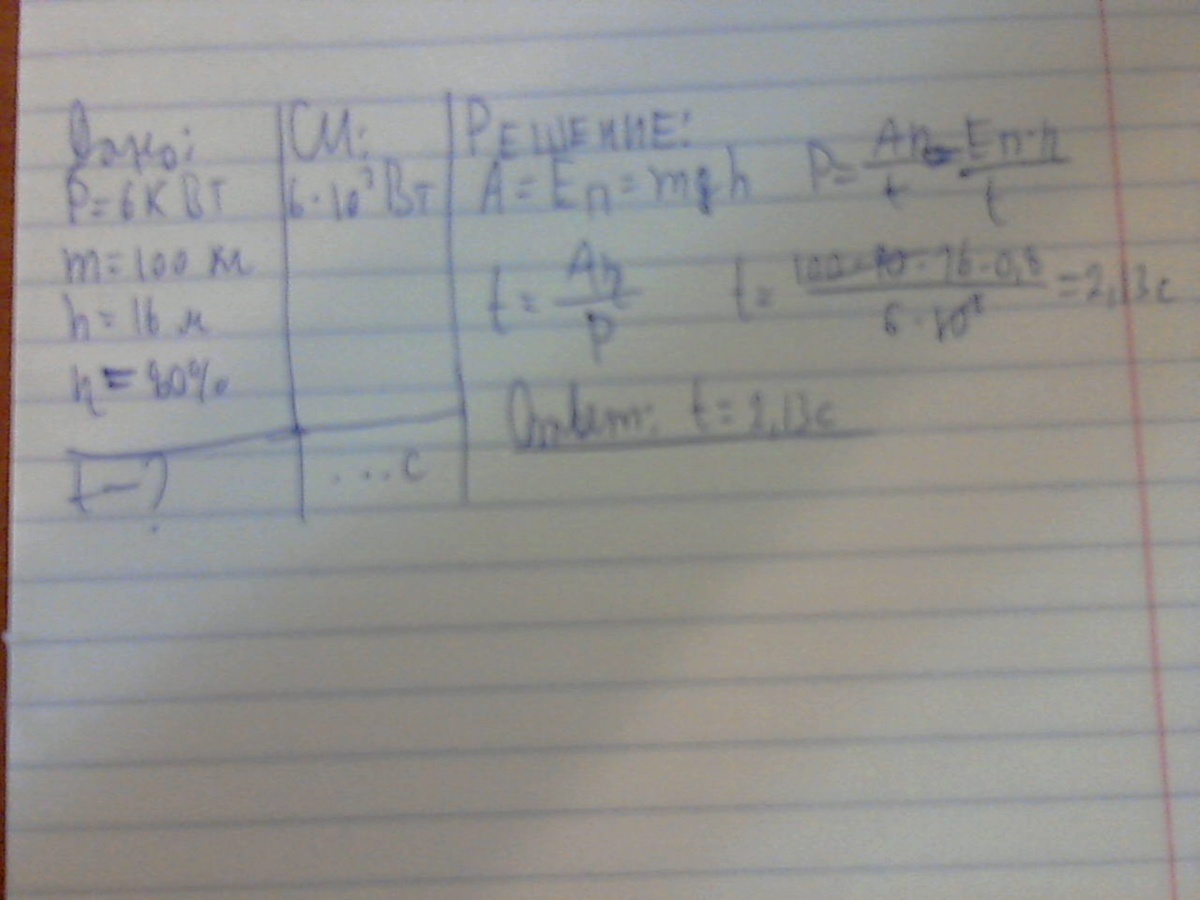 Дано:
P = 6 К Вт
m = 100 кг
h = 16 м
η = 80%
t – ?
СИ:
6 · 10³ Вт
... с
РЕШЕНИЕ:
A = Eп = mgh P = Aη/t = Eп·η/t
t = Aη/P t = 100·10·16·0,8/6·10³ = 2,13 с
Ответ: t = 2,13 с